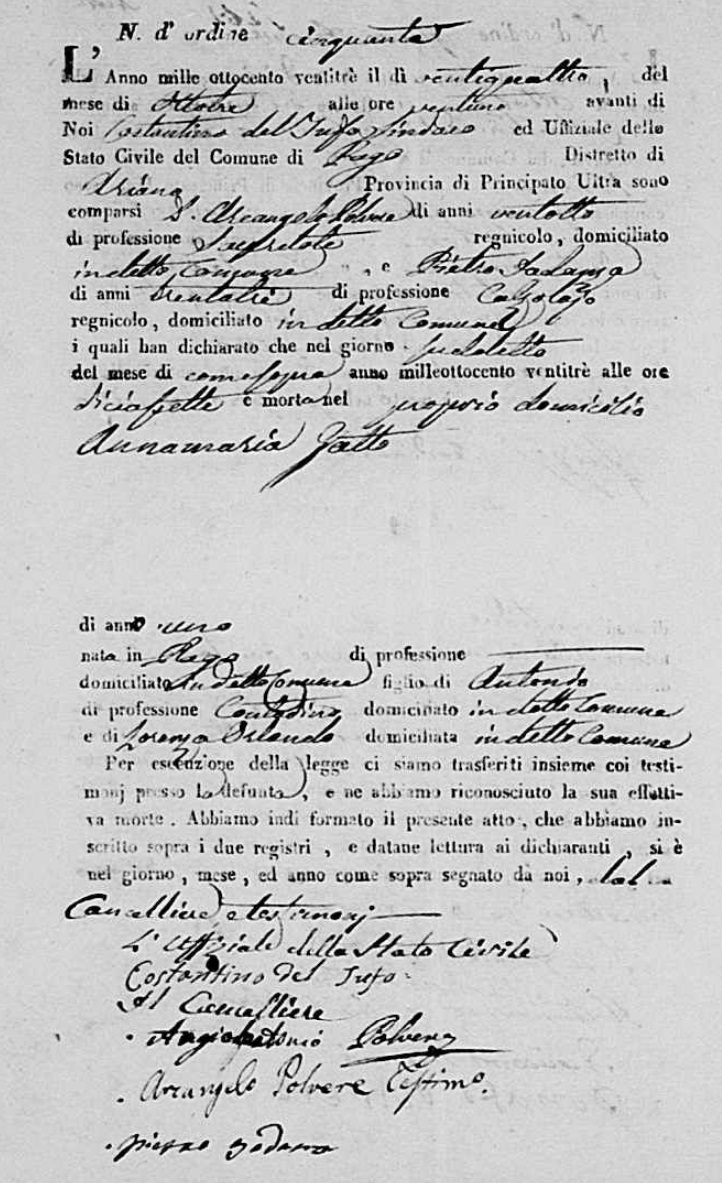 N. d' ordine cinquanta
L' Anno mille ottocento ventitrè il dì ventiquattro, del
mese di Ottobre alle ore ventuno avanti di
Noi Costantino del Tufo Sindaco ed Uffiziale dello
Stato Civile del Comune di Pago Distretto di
Ariano Provincia di Principato Ultra sono
comparsi D. Arcangelo Polvere di anni ventotto
di professione Sacerdote regnicolo, domiciliato
in detto Comune, e Pietro
di anni trentatrè di professione Calzolajo
regnicolo, domiciliato in detto Comune
i quali han dichiarato che nel giorno sudetto
del mese di come sopra anno milleottocento ventitrè alle ore
diciassette è morta nel proprio domicilio
Annamaria Zatto
di anno uno
nata in Pago di professione
domiciliato in detto Comune figlio di Antonio
di professione Contadino domiciliato in detto Comune
e di Lorenza Orlando domiciliata in detto Comune
Per esecuzione della legge ci siamo trasferiti insieme coi testi-
monj presso la defunta, e ne abbiamo riconosciuto la sua effetti-
va morte. Abbiamo indi formato il presente atto, che abbiamo in-
scritto sopra i due registri, e datane lettura ai dichiaranti, si è
nel giorno, mese, ed anno come sopra segnato da noi, dal
Cancelliere e testimonj
L'Uffiziale dello Stato Civile
Costantino Del Tufo
Il Cancelliere
Angiolantonio Polvere
Arcangelo Polvere Testimo.